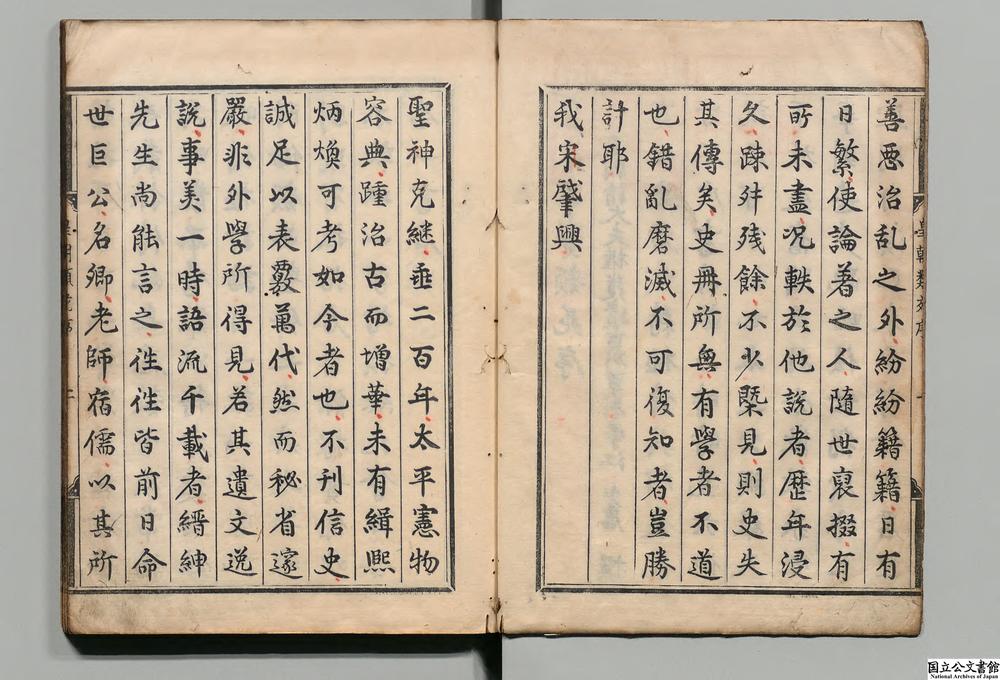 善惡治乱之外紛紛籍籍日有
日繁使論著之人隨世裒掇有
所未盡况軼於他說者歷年浸
久疎舛残餘不少槩見則史失
其傳矣史冊所無有學者不道
也錯亂磨滅不可復知者豈勝
計耶
我宋肇興
聖神克継垂二百年太平憲物
容典踵治古而增華未有緝熙
炳煥可考如今者也不刊信史
誠足以表覈萬代然而秘省邃
嚴非外學所得見若其遺文逸
說事美一時語流千載者縉紳
先生尚能言之徃徃皆前日命
世巨公名卿老師宿儒以其所
皇朝類苑序
一
二
国立公文書館
National Archives of Japan